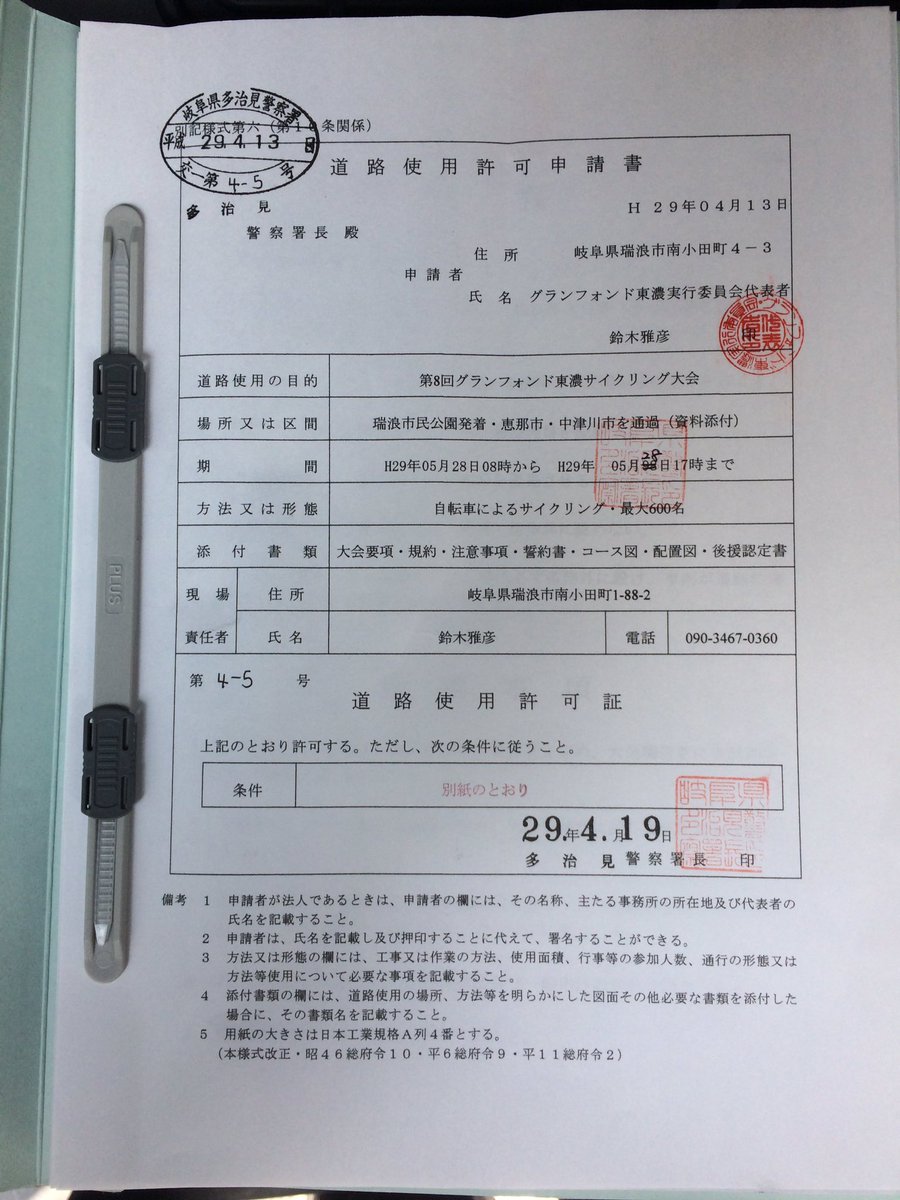 岐阜県多治見警察署
平成 29.4.13 日
交一第 4-5 号
別記様式第六(第10条関係)
道路使用許可申請書
H 29年04月13日
多治見
警察署長 殿
住所 岐阜県瑞浪市南小田町4-3
申請者
氏名 グランフォンド東濃実行委員会代表者
鈴木雅彦 印
道路使用の目的 第8回グランフォンド東濃サイクリング大会
場所又は区間 瑞浪市民公園発着・恵那市・中津川市を通過(資料添付)
28
期間 H29年05月28日08時から H29年 05月日17時まで
方法又は形態 自転車によるサイクリング・最大600名
添付書類 大会要項・規約・注意事項・誓約書・コース図・配置図・後援認定書
現場 住所 岐阜県瑞浪市南小田町1-88-2
責任者 氏名 鈴木雅彦 電話 090-3467-0360
PLUS
第 4-5 号
道路使用許可証
上記のとおり許可する。ただし、次の条件に従うこと。
条件 別紙のとおり
29.年4.月19日
多治見警察署長 印
備考 1 申請者が法人であるときは、申請者の欄には、その名称、主たる事務所の所在地及び代表者の
氏名を記載すること。
2 申請者は、氏名を記載し及び押印することに代えて、署名することができる。
3 方法又は形態の欄には、工事又は作業の方法、使用面積、行事等の参加人数、通行の形態又は
方法等使用について必要な事項を記載すること。
4 添付書類の欄には、道路使用の場所、方法等を明らかにした図面その他必要な書類を添付した
場合に、その書類名を記載すること。
5 用紙の大きさは日本工業規格A列4番とする。
(本様式改正・昭46総府令10・平6総府令9・平11総府令2)